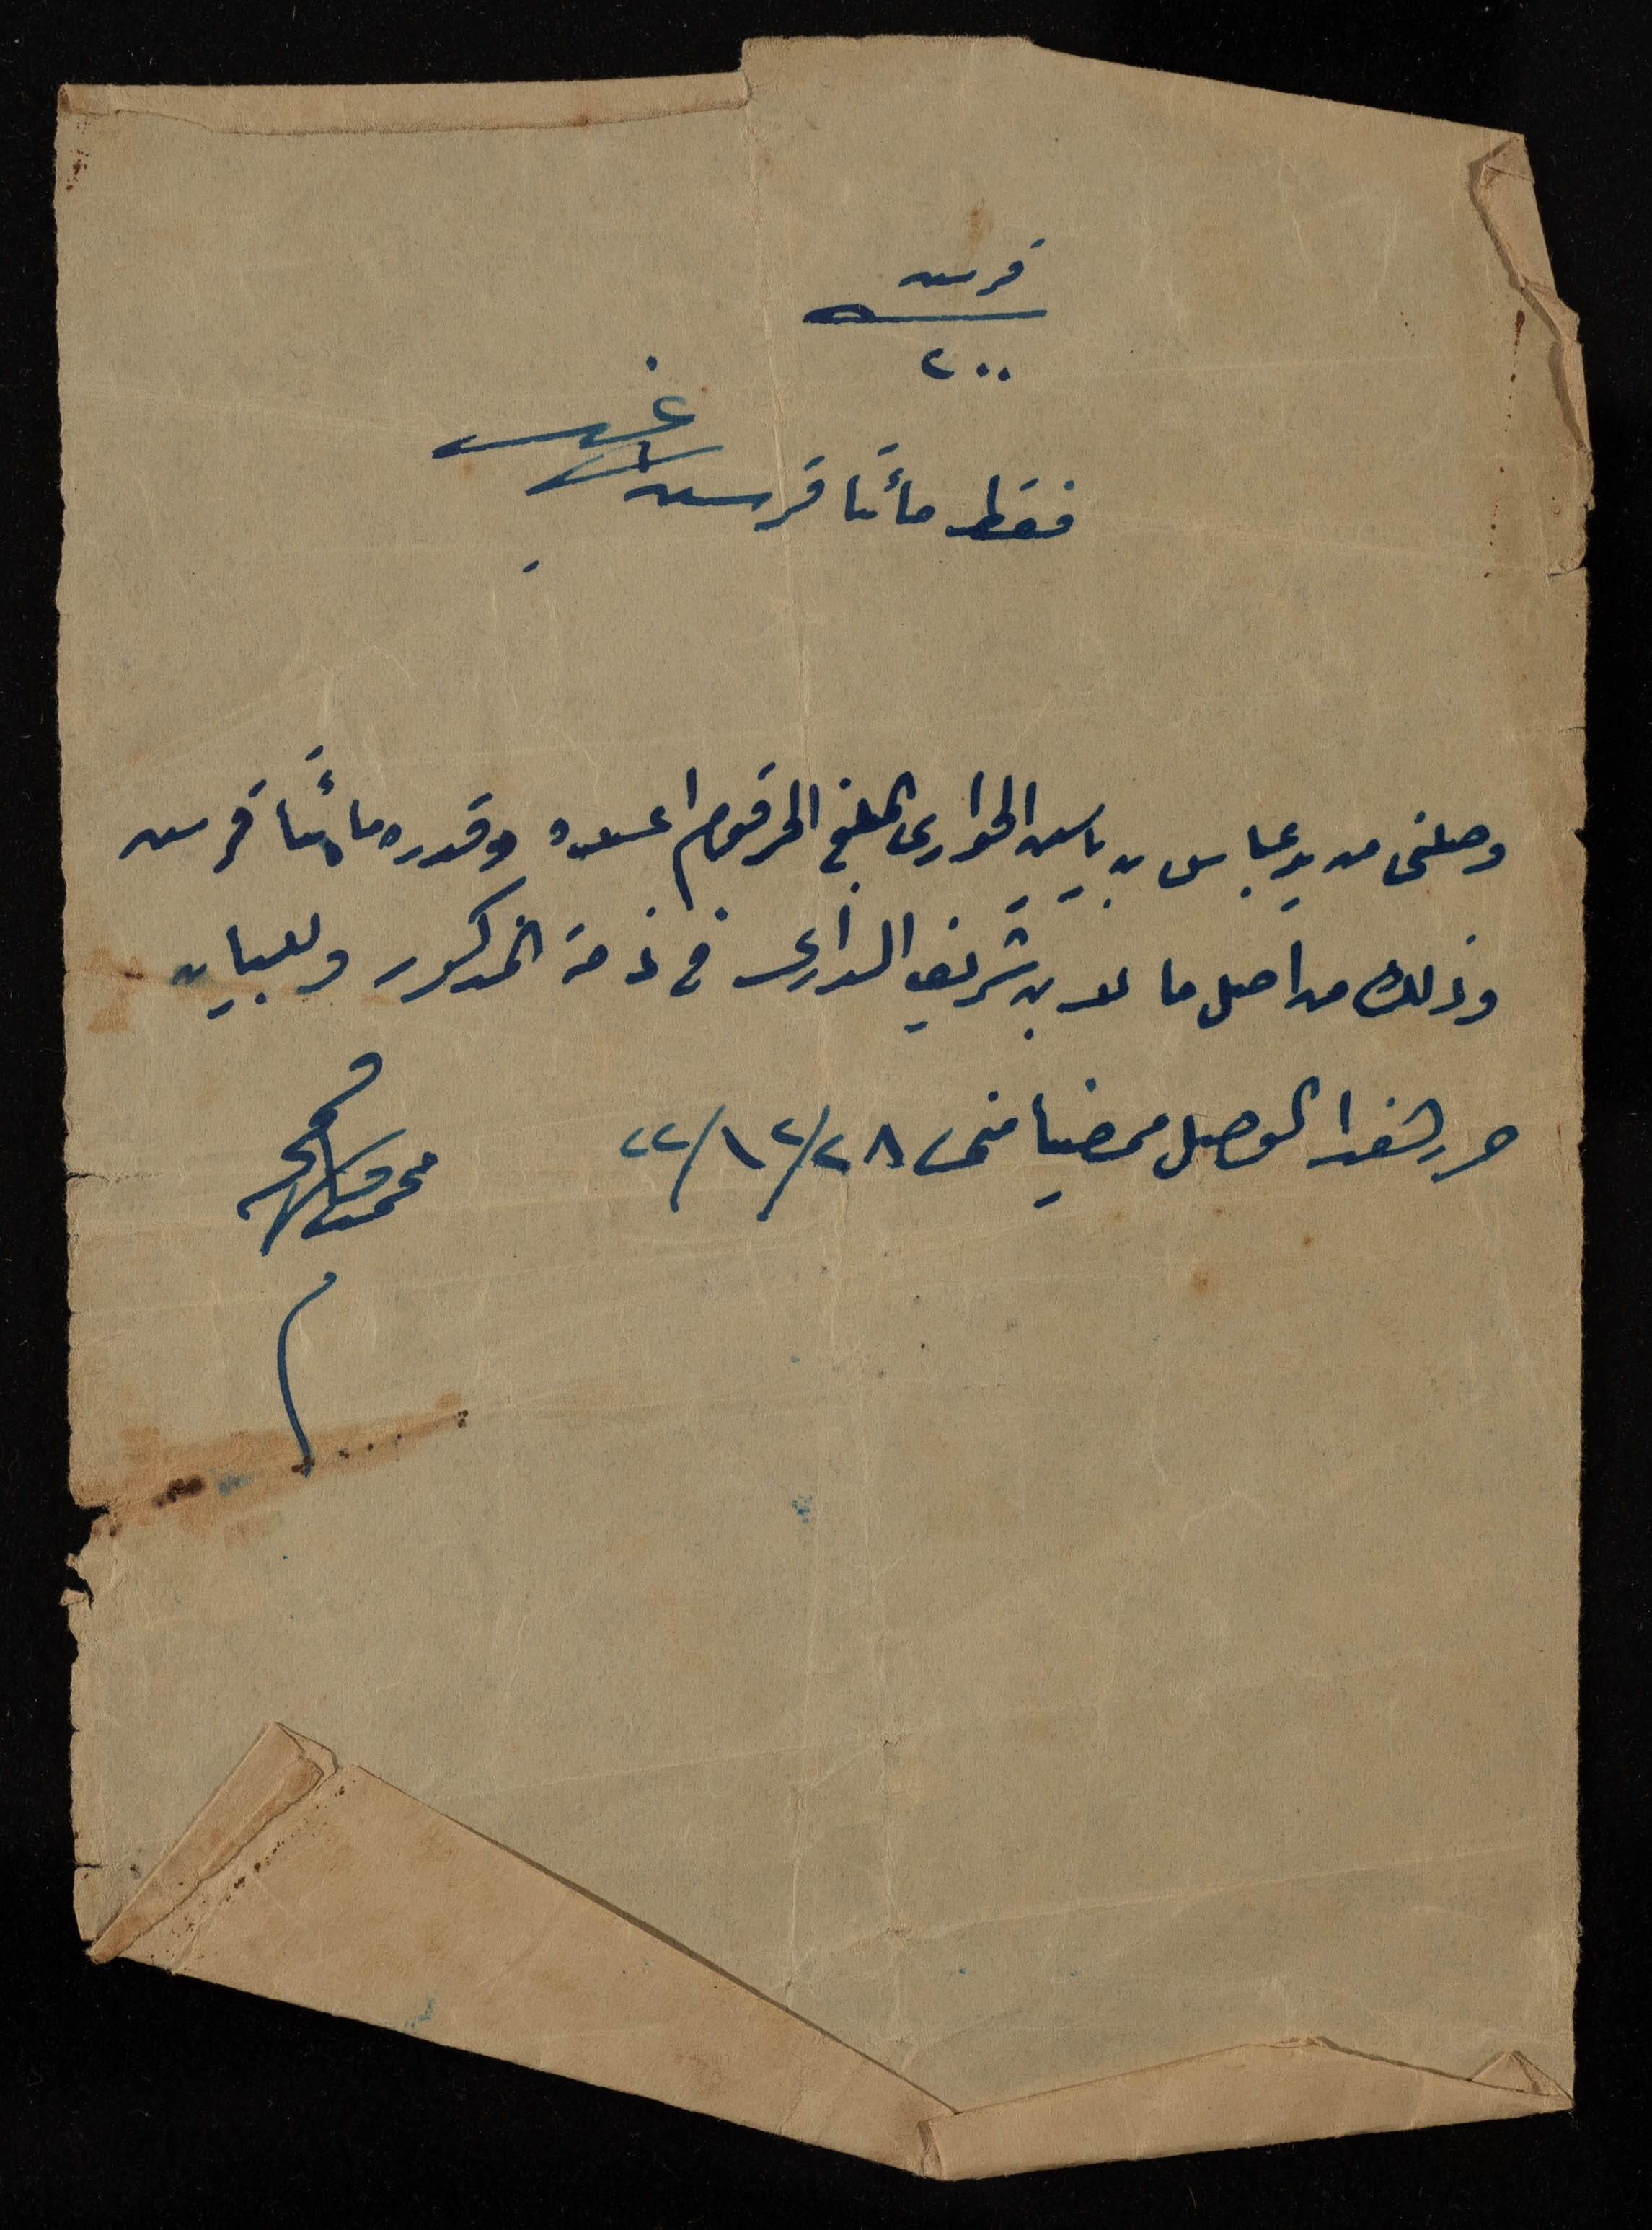 قرش
٢٠٠
فقط مائتا قرش لا غير
وصلني من يد عباس بن ياسين الحواري المبلغ المرقوم اعلاه وقدره مائتا قرش
وذلك من أصل ما له بن شريف الداري في ذمة المذكور وللبيان
حرر هذا الوصل ممضيا مني ٢٨/١٢/٢٢
محمد